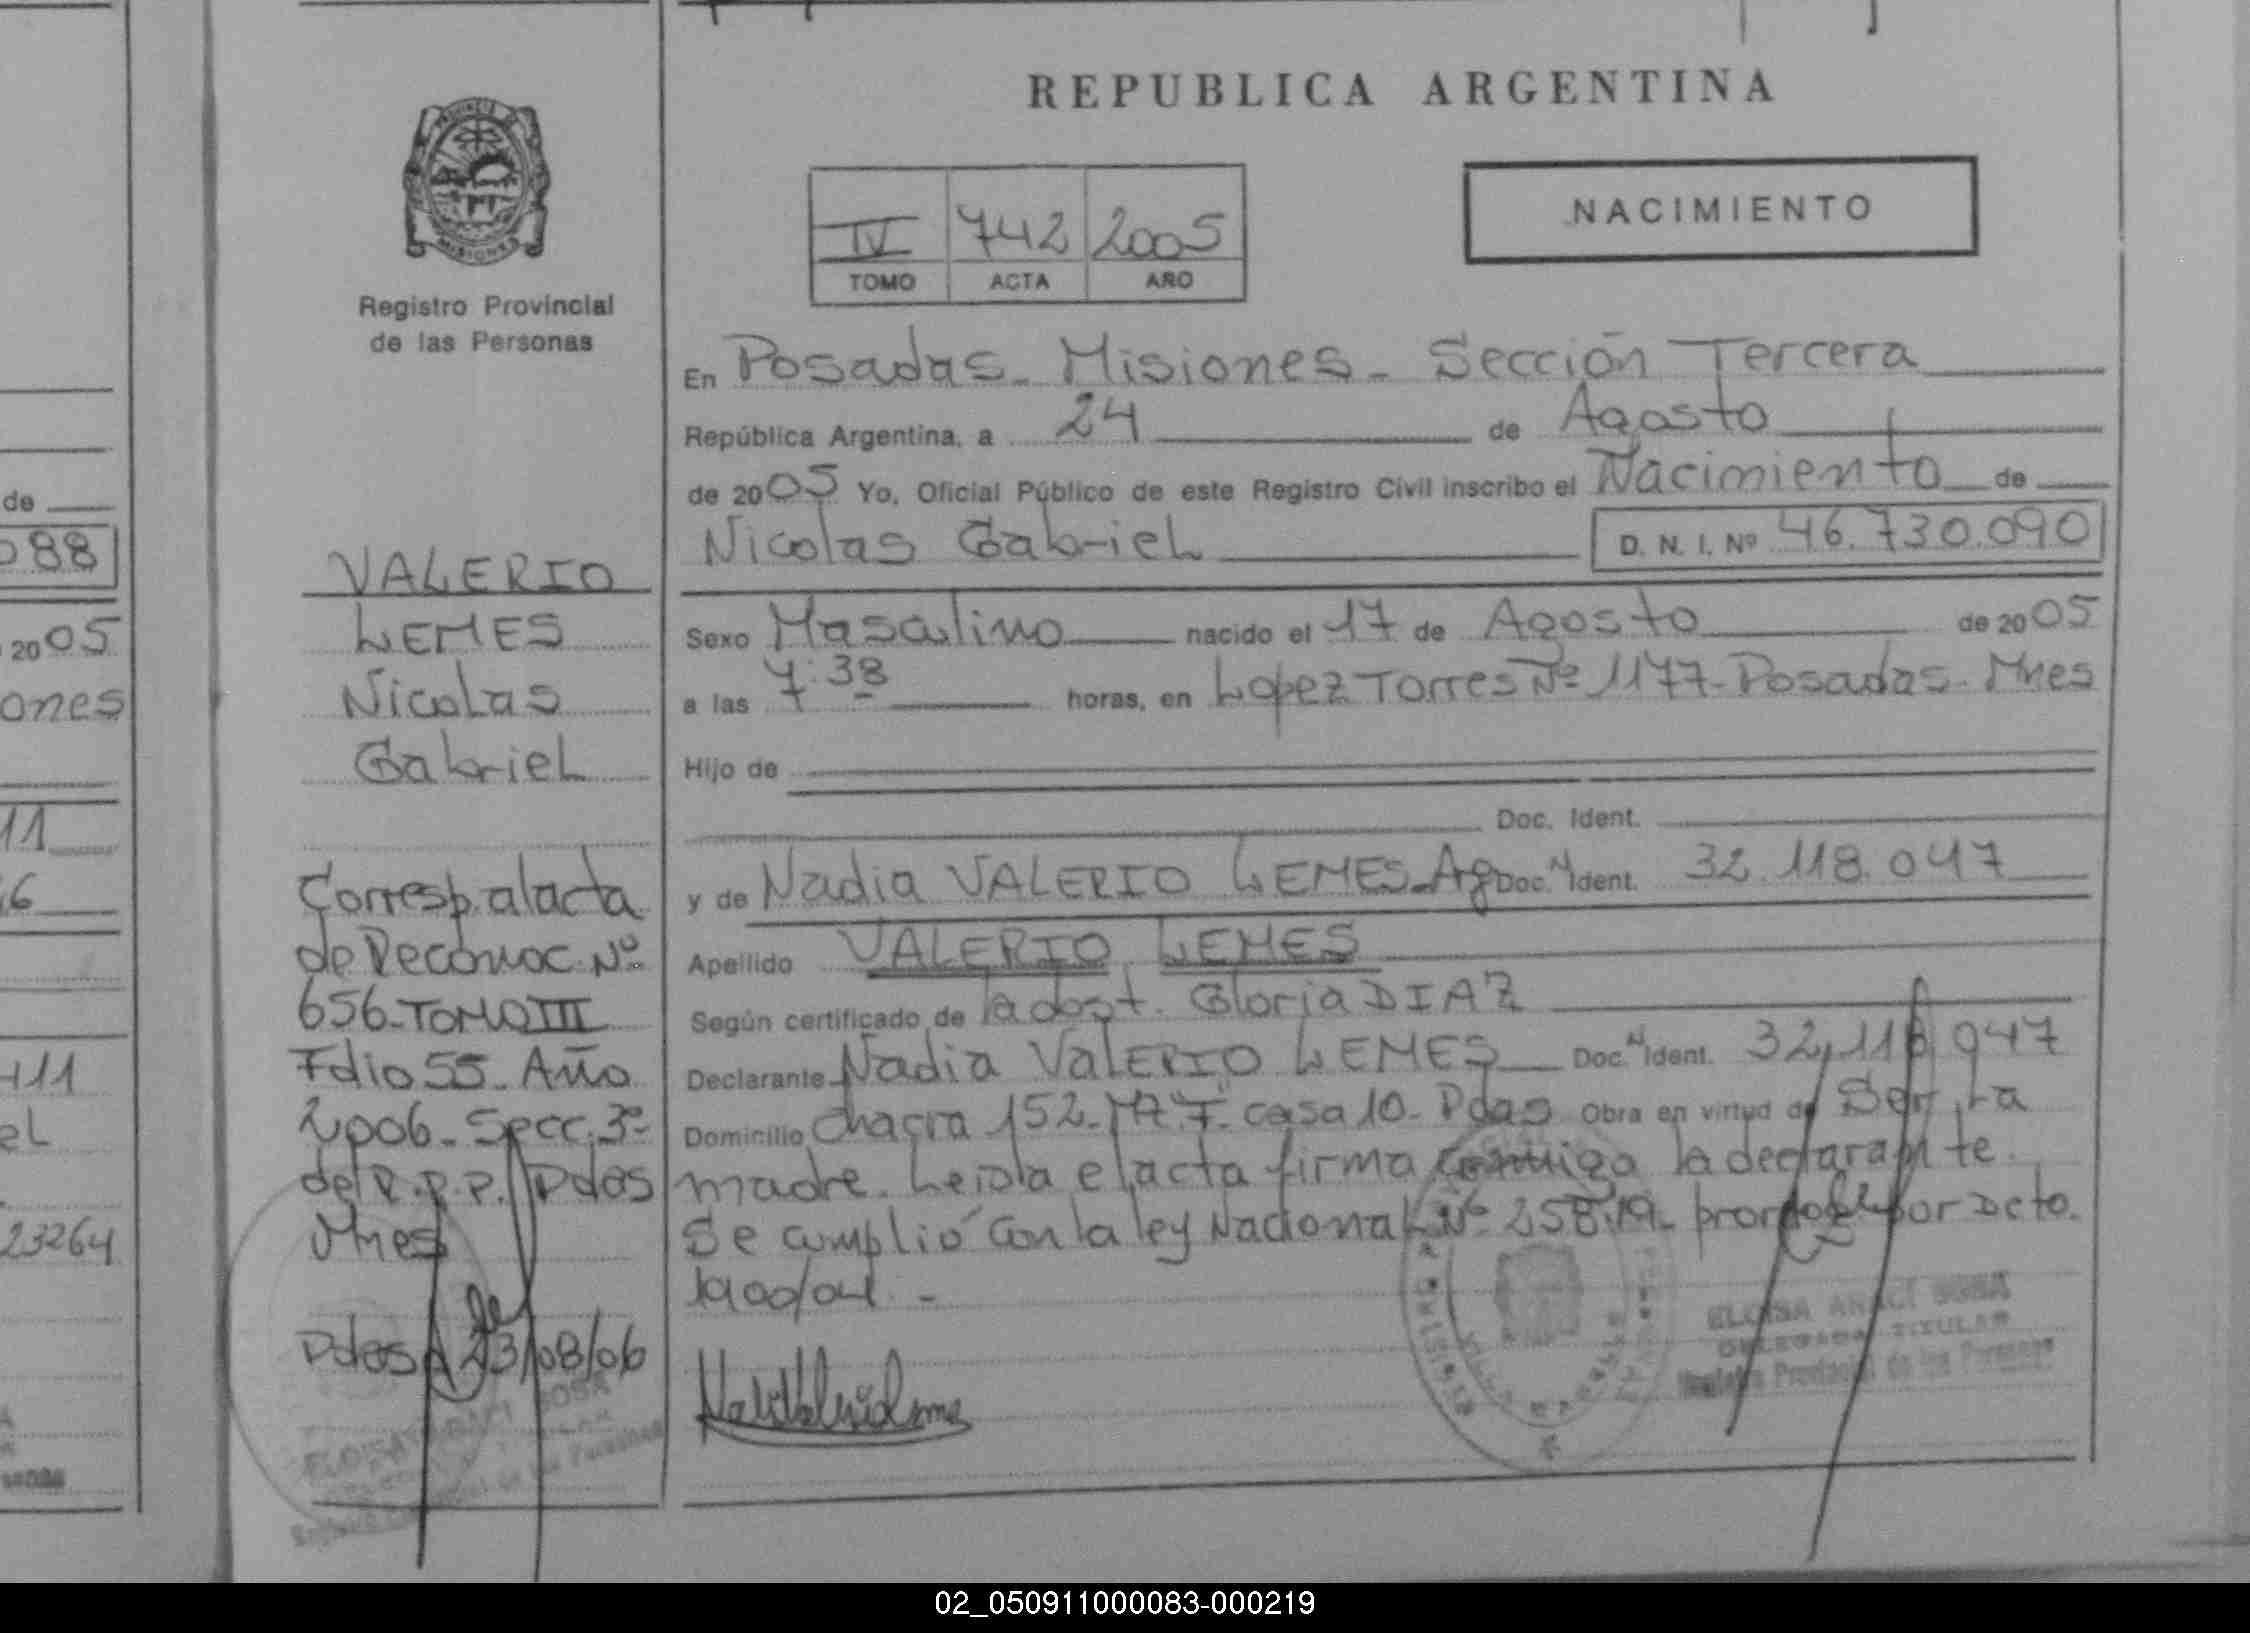 REPUBLICA ARGENTINA
PROVINCIA DE
MISIONES
Registro Provincial
de las Personas
NACIMIENTO
IV 742 2005
TOMO ACTA AÑO
En Posadas - Misiones - Sección Tercera
República Argentina, a 24 de Agosto
de 2005 Yo, Oficial Público de este Registro Civil inscribo el Nacimiento de
Nicolas Gabriel D. N. I. Nº 46.730.090
Sexo Masculino nacido el 17 de Agosto de 2005
a las 7:38 horas, en Lopez Torres Nº 1177 - Posadas - Mnes
Hijo de
Doc. Ident.
y de Nadia VALERIO LEMES - Arg Doc. N Ident. 32.118.047
Apellido VALERIO LEMES
Según certificado de la obst. Gloria DIAZ
Declarante Nadia VALERIO LEMES Doc. N Ident. 32.118.047
Domicilio Chacra 152 - M 7 - casa 10 - Pdas Obra en virtud de Ser la
madre. Leida el acta firma conmigo la declarante.
Se cumplió con la ley Nacional Nº 25819 - prorrog. por Dcto.
1900/04 -
VALERIO
LEMES
Nicolas
Gabriel
Corresp. al acta
de Reconoc. Nº
656 - TOMO III
Folio 55 - Año
2006 - Secc. 3º
del R.P.P. Pdas
Mnes
Pdas 23/08/06
ELOISA ARACI SOSA
DELEGADA TITULAR
Registro Provincial de las Personas
ELOISA ARACI SOSA
de las Personas
de
088
2005
ones
11
6
411
el
23264
02_050911000083-000219